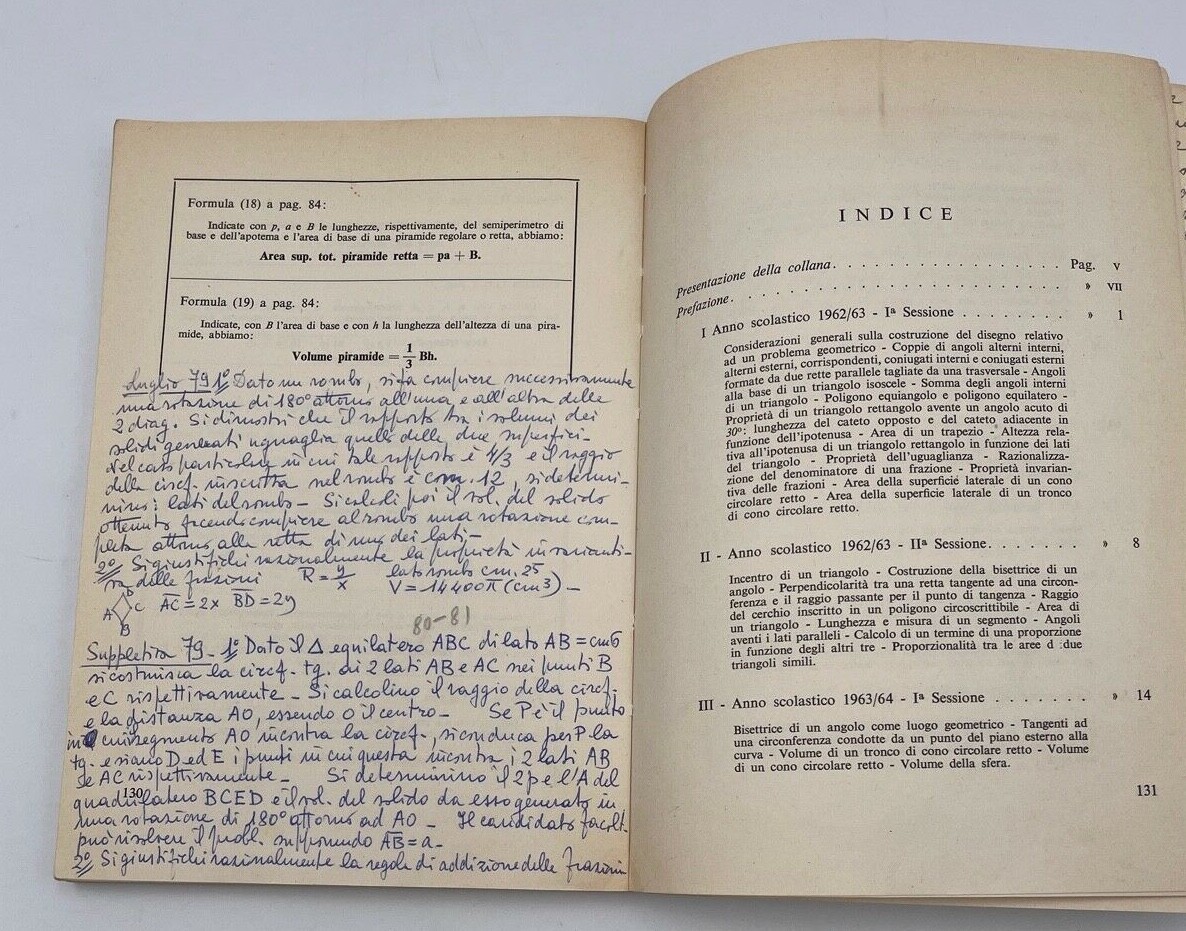 Formula (18) a pag. 84:
Indicate con p, a e B le lunghezze, rispettivamente, del semiperimetro di
base e dell'apotema e l'area di base di una piramide regolare o retta, abbiamo:
Area sup. tot. piramide retta = pa + B.
Formula (19) a pag. 84:
Indicate, con B l'area di base e con h la lunghezza dell'altezza di una pira-
mide, abbiamo:
Volume piramide = 1/3 Bh.
Luglio 79 1º Dato un rombo, si fa compiere successivamente
una rotazione di 180° attorno all'una e all'altra delle
2 diag. Si dimostri che il rapporto tra i volumi dei
solidi generati uguaglia quello delle due superfici-
Nel caso particolare in cui tale rapporto è 4/3 e il raggio
della circf. inscritta nel rombo è com. 12, si determi-
nino i lati del rombo - Si calcoli poi il vol. del solido
ottenuto facendo compiere al rombo una rotazione com-
pleta attorno alla retta di uno dei lati -
2º Si giustifichi razionalmente la proprietà invarianti-
va delle frazioni R = y/x lato rombo cm. 25
A B C D AC = 2x BD = 2y V = 14400π (cm3) -
80-81
Suppletiva 79 - 1º Dato il Δ equilatero ABC di lato AB = cm 6
si costruisca la circf. tg. ai 2 lati AB e AC nei punti B
e C rispettivamente - Si calcolino il raggio della circf.
e la distanza AO, essendo O il centro - Se P è il punto
in cui segmento AO incontra la circf., si conduca per P la
tg. e siano D ed E i punti in cui questa incontra i 2 lati AB
e AC rispettivamente - Si determinino il 2p e l'A del
quadrilatero BCED e il vol. del solido da esso generato in
130
una rotazione di 180° attorno ad AO - Il candidato facolt.
può risolvere il probl. supponendo AB = a -
2º Si giustifichi razionalmente la regola di addizione delle frazioni
INDICE
Presentazione della collana. . . . . . . . . . . . . . . . . Pag. V
Prefazione. . . . . . . . . . . . . . . . . . . . . . . » VII
I Anno scolastico 1962/63 - Iª Sessione . . . . . . . . » 1
Considerazioni generali sulla costruzione del disegno relativo
ad un problema geometrico - Coppie di angoli alterni interni,
alterni esterni, corrispondenti, coniugati interni e coniugati esterni
formate da due rette parallele tagliate da una trasversale - Angoli
alla base di un triangolo isoscele - Somma degli angoli interni
di un triangolo - Poligono equiangolo e poligono equilatero -
Proprietà di un triangolo rettangolo avente un angolo acuto di
30º: lunghezza del cateto opposto e del cateto adiacente in
funzione dell'ipotenusa - Area di un trapezio - Altezza rela-
tiva all'ipotenusa di un triangolo rettangolo in funzione dei lati
del triangolo - Proprietà dell'uguaglianza - Razionalizza-
zione del denominatore di una frazione - Proprietà invarian-
tiva delle frazioni - Area della superficie laterale di un cono
circolare retto - Area della superficie laterale di un tronco
di cono circolare retto.
II - Anno scolastico 1962/63 - IIª Sessione. . . . . . . » 8
Incentro di un triangolo - Costruzione della bisettrice di un
angolo - Perpendicolarità tra una retta tangente ad una circon-
ferenza e il raggio passante per il punto di tangenza - Raggio
del cerchio inscritto in un poligono circoscrittibile - Area di
un triangolo - Lunghezza e misura di un segmento - Angoli
aventi i lati paralleli - Calcolo di un termine di una proporzione
in funzione degli altri tre - Proporzionalità tra le aree d due
triangoli simili.
III - Anno scolastico 1963/64 - Iª Sessione . . . . . . . » 14
Bisettrice di un angolo come luogo geometrico - Tangenti ad
una circonferenza condotte da un punto del piano esterno alla
curva - Volume di un tronco di cono circolare retto - Volume
di un cono circolare retto - Volume della sfera.
131